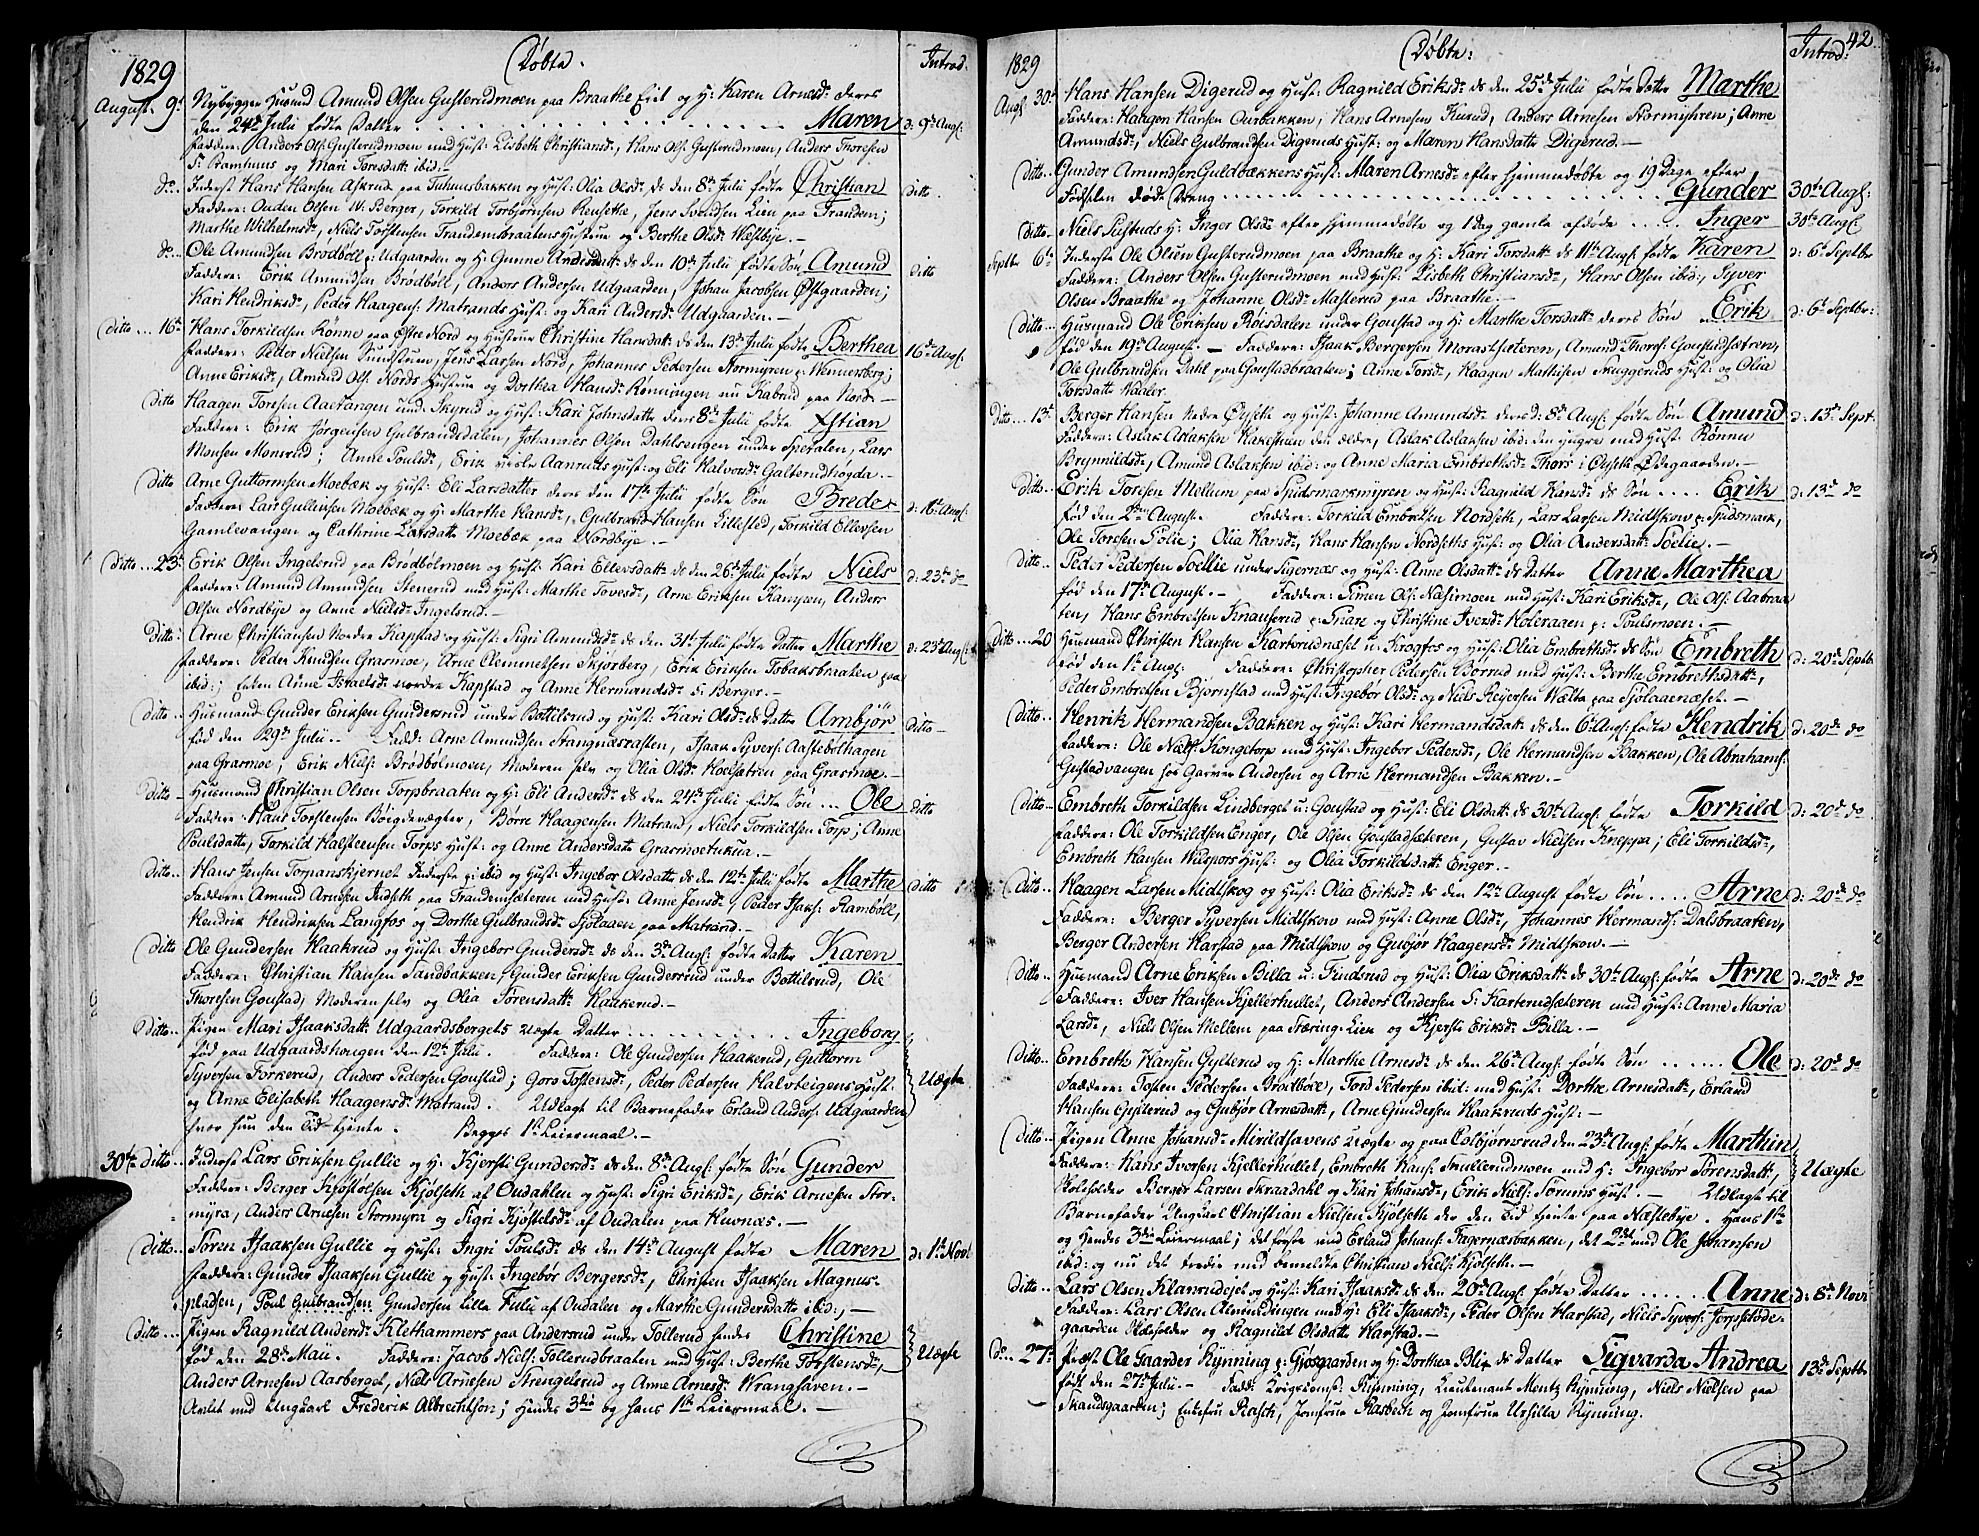 1829 Døbte. Introd.
August. 9de Nybygger Husmd Amund Olsen Gusterudmoen paa Braathe Eiet og H: Karen Arnesd: deres
den 24de Julii fødte Datter Maren d: 9de Augl:
Faddere: Anders Ols: Gusterudmoen med Hust: Lisbeth Christiansd:, Hans Ols: Gusterudmoen, Anders Thoresen
S: Ramhuus og Mari Toresdatt: ibid:—
do.. Inderst Hans Hansen Askrud paa Tuhuusbakken og Hust: Olia Olsd: ds den 8de Julii fødte Christian Ditto
Faddere: Ouden Olsen N: Berger, Torkild Torbjørnsen Rensethe, Jens Svendsen Lien paa Trandem;
Marthe Wilhelmsd:, Niels Torstensen Trandembraatens Hustrue og Berthe Olsd: Westbye.—
do.. Ole Amundsen Brødbøll p: Udgaarden og H: Gunne Andersdatt: ds den 10de Julii fødte Søn Amund Ditto
Faddere: Erik Amundsen Brødbøll, Anders Andersen Udgaarden, Johan Jacobsen Østgaarden;
Kari Hendriksd:, Peder Haagens: Matrands Hust: og Kari Andersd: Udgaarden.—
Ditto ... 16de Hans Torkildsen Rønne paa Østre Nord og Hustrue Christine Hansdatt: ds den 13de Julii fødte Berthea 16de Augl:
Faddere: Peder Nielsen Sundstuen, Jens Larsen Nord, Johannes Pedersen Stormyren p: Wennersberg;
Anne Eriksd:, Amund Ols: Nords Hustrue og Dorthea Hansd: Rønningen nu Kabrud paa Nord.—
Ditto Haagen Toresen Aaevangen und: Skyrud og Hust: Kari Johnsdatte dens 8de Julii fødte Xstian
Faddere: Erik Jørgensen Gulbrandsdalen, Johannes Olsen Dahlsengen under Speralen, Lars
Monsen Momrud; Anne Poulsd:, Erik vestre Aanruds Hust: og Eli Halvorsd: Galterudhøgda.—
Ditto Arne Guttormsen Moebæk og Hust: Eli Larsdatter deres den 17de Julii fødte Søn Brede d: 16 Augl:
Faddere: Lars Gulliksen Moebæk og H: Marthe Hansd:, Gulbrand Hansen Lillested, Torkild Ellevsen
Gamlevangen og Cathrine Larsdatt: Moebæk paa Nordbye.—
Ditto ... 23de Erik Olsen Ingelsrud paa Brødbølmoen og Hust: Kari Ellevsdatt: ds den 26de Julii fødte Niels d: 23de do
Faddere: Amund Amundsen Stenerud med Hust: Marthe Tovesd:, Arne Eriksen Kampen, Anders
Olsen Nordbye og Anne Nielsd: Ingelsrud.—
Ditto: Arne Christiansen Nordre Kapstad og Hust: Sigri Amundsd: ds den 31te Julii fødte Datter Marthe d: 23de Augl:
Faddere: Peder Knudsen Grasmoe, Arne Clemmetsen Skjørberg, Erik Eriksen Tobaksbraaten paa
ibid:; Enken Anne Israelsd: nordre Kapstad og Anne Hermandsd: S: Berger.—
Ditto .. Husmand Gunder Eriksen Gundersrud under Bottilsrud og Hust: Kari Olsd: ds Datter Ambjør Ditto—
fød den 29de Julii.— Fadd: Arne Amundsen Stangnæsræsten, Isaak Syvers: Aastebolhagen
paa Grasmoe, Erik Niels: Brødbølmoen, Moderen selv og Olia Olsd: Hoelsætren paa Grasmoe.—
Ditto— Husmand Christian Olsen Torpsbraaten og H: Eli Andersd: ds den 24de Julii fødte Søn ... Ole Ditto
Faddere: Hans Torstensen Bøigdevægter, Børre Haagensen Matrand, Niels Torkildsen Torp; Anne
Poulsdatt:, Torkild Halsteensen Torps Hust: og Anne Andersdatt: Grasmoetukua.—
Ditto.. Hans Jensen Torpanskjernet Inderste p: ibid og Hust: Ingebor Olsdatt: ds den 12te Julii fødte Marthe Ditto
Faddere: Amund Arnesen Indseth paa Trandemsæteren med Hust: Anne Jensd:, Peder Isaks: Rambøll,
Hendrik Hendriksen Langfos og Dorthe Gulbrandsd: Sjolaaen paa Matrand.—
Ditto Ole Gundersen Haakerud og Hust: Ingebor Gundersd: ds den 3de Augl: fødte Datter Karen
Faddere: Christian Hansen Sandbakken, Gunder Eriksen Gundersrud under Bottilsrud, Ole
Thoresen Goustad, Moderen selv og Olia Sørensdatt: Haakerud.—
Ditto.. Pigen Mari Isaaksdatt: Udgaardsbergets uægte Datter Ingeborg
fød paa Udgaardshougen den 12te Julii. Faddere: Ole Gundersen Haakerud, Guttorm
Syversen Torkerud, Anders Pedersen Goustad; Goro Tostensd:, Peder Pedersen Halvteigens Hust: Uægte
og Anne Elisabeth Haagensd: Matrand. Udlagt til Barnefader Erland Anders: Udgaarden
hvor hun den Tid tjente. Begges 1ste Leiermaal.—
30te Ditto .. Inderst Lars Eriksen Gullie og H: Kjersti Gundersd: ds den 8de Augl: fødte Søn Gunder
Faddere: Berger Kjøstolsen Kjølseth af Oudahlen og Hust: Sigri Eriksd:, Erik Arnesen Stor-
myra, Anders Arnesen Stormyra og Sigri Kjøstelsd: af Oudalen paa Huvnæs.—
Ditto.. Søren Isaaksen Gullie og Hust: Ingri Poulsd: ds den 14de August fødte Maren d: 1ste Novl
Faddere: Gunder Isaaksen Gullie og Hust: Ingebør Bergersd:, Christen Isaaksen Magnus-
pladsen, Poul Gulbrandsen Gundersen Lilla Fulu af Oudalen og Marthe Gundersdatte ibid:,—
Ditto ... Pigen Ragnild Andersd: Klethammers paa Andersrud under Tollerud hendes Christine
fød den 28de Maii. Faddere: Jacob Niels: Tollerudbraaten med Hust: Berthe Torstensd:, Uægte
Anders Arnesen Aasberget, Niels Arnesen Strengelsrud og Anne Arnesd: Wranghaven.—
Avlet med Ungkarl Frederik Albrechtson; hendes 3die og hans 1ste Leiermaal.—
1829 Døbte: Introd: 42.
Augl 30te Hans Hansen Digerud og Hust: Ragnild Eriksd: ds 25de Julii fødte Datter Marthe
Faddere: Haagen Hansen Ourbakken, Hans Arnesen Kurud, Anders Arnesen Stormyhren; Anne
Amundsd:, Niels Gulbrandsen Digeruds Hust: og Maren Hansdatte Digerud.—
Ditto.. Gunder Amundsen Guldbækkens Hust: Maren Arnesd: efter hjemmedøbte og 19 Dage efter
Fødselen døde Dreng Gunder 30te Augl:
Ditto.. Niels Siestuds H: Inger Olsd: efter hjemmedøbte og 1 Dag gamle afdøde Inger 30te Augl:
Septbr 6te Inderste Ole Olsen Gusterudmoen paa Braathe og H: Kari Torsd: ds 11te Augl: fødte Karen d: 6te Septbr
Faddere: Anders Olsen Gusterudmoen med Hust: Lisbeth Christiansd:, Hans Olsen ibid:, Syver
Olsen Braathe og Johanne Olsd: Masterud paa Braathe.—
Ditto.. Husmand Ole Eriksen Røisdalen under Goustad og H: Marthe Torsdatt: deres Søn Erik d: 6te Septbr:
fød den 19de August. — Faddere: Isaak Bergersen Morastsæteren, Amund Thors: Goustadsætren,
Ole Gulbrandsen Dahl paa Goustadbraaten; Anne Torsd:, Haagen Mathisen Skuggeruds Hust: og Olia
Torsdatt: Waaler.
Ditto... 13de Berger Hansen Nedre Øyseth og Hust: Johanne Amundsd: deres d: 8de Augl: fødte Søn Amund d: 13de Sept:
Faddere: Aslak Aslaksen Kakestuen den ældre, Aslak Aslaksen ibid: den yngre med Hust: Rønnu
Brynnildsd:, Amund Aslaksen ibid: og Anne Maria Embrethsd: Thors i Øyseth Ødegaarden.—
Ditto.. Erik Toresen Mellum paa Spidsmarkmyren og Hust: Ragnild Hansd: ds Søn .... Erik d: 13de do
fød den 2den August. Faddere: Torkild Embretsen Nordseth, Lars Larsen Midtskow p: Spidsmark,
Ole Toresen Solie; Olia Hansd:, Hans Hansen Nordseths Hust: og Olia Andersdatt: Søelie.—
Ditto Peder Pedersen Soellie under Sigernæs og Hust: Anne Olsdatt: ds Datter Anne Marthea
fød den 17de August.— Faddere: Simen Ols: Næsimoen med Hust: Kari Eriksd:, Ole Ols: Aabraa
ten, Hans Embretsen Knauserud p: Snare og Christine Iversd: Holeraaen p: Poulsmoen.—
Ditto ... 20 Husmand Christen Hansen Karterudnæset u: Krogfos og Hust: Olia Embrethsd: ds Søn Embreth d: 20de Septbr
fød den 1ste Augl: Faddere: Christopher Pedersen Børrud med Hust: Berthe Embrethsdatt:,
Peder Embretsen Bjørnstad med Hust: Ingebør Olsd: og Niels Reiersen Wælta paa Sjolaaenæset.—
Ditto.. Henrik Hermandsen Bakken og Hust: Kari Hermandsdatt: ds den 6te Augl: fødte Hendrik d: 20de do
Faddere: Ole Niels: Kongetorp med Hust: Ingebor Pedersd:, Ole Hermandsen Bakken, Ole Abrahams:
Gustadvangen hos Garver Andersen og Arne Hermandsen Bakken.—
Ditto— Embreth Torkildsen Lindberget u: Goustad og Hust: Eli Olsdatt: ds 30te Augl: fødte Torkild d: 20de do
Faddere: Ole Torkildsen Enger, Ole Olsen Goustadsæteren, Gustav Nielsen Kneppa; Eli Torkildsd:,
Embreth Hansen Wilspors Hust: og Olia Torkildsdatt: Enger.—
Ditto.. Haagen Larsen Midtskog og Hust: Olia Eriksd: ds den 12te August fødte Søn .... Arne d: 20de do
Faddere: Berger Syversen Midtskow med Hust: Anne Olsd:, Johannes Hermands: Dalsbraaten,
Berger Andersen Harstad paa Midtskow og Gubjør Haagensd: Midtskow.—
Ditto.. Husmand Arne Eriksen Billa u: Findsrud og Hust: Olia Eriksdatt: ds 30te Augl: fødte Arne d: 20de do
Faddere: Iver Hansen Kjellerhullet, Anders Andersen S: Karterudsæteren med Hust: Anne Maria
Larsd:, Niels Olsen Mellem paa Stæring-Liek og Kjersti Eriksd: Billa.—
Ditto.. Embreth Hansen Gylterud og H: Marthe Arnesd: ds den 26de Augl: fødte Søn ...... Ole d: 20de do
Faddere: Tosten Pedersen Brødbøve, Tord Pedersen ibid: med Hust: Dorthe Arnesdatt:, Erland
Hansen Gylterud og Gubjør Arnesdatt:, Arne Gundersen Haakeruds Hust:—
Ditto... Pigen Anne Johansd: Mirildhavens uægte og paa Colbjørnsrud den 23de Augl: fødte Marthin
Faddere: Hans Iversen Kjellerhullet, Embreth Hans: Trullerudmoen med H: Ingebor Sørensdatt:, Uægte
Skoleholder Berger Larsen Skraadahl og Kari Johansd:, Erik Niels: Sørums Hust:— Udlagt til
Barnefader Ungkarl Christian Nielsen Kjølseth der den Tid tjente paa Næstebye. Hans 1ste
og Hendes 3die Leiermaal; det første med Erland Johans: Fagernæsbakken, det 2det med Ole Johansen
ibid: og nu det tredie med bemeldte Christian Niels: Kjølseth.—
Ditto.. Lars Olsen Klavrudejet og Hust: Kari Isaaksd: ds den 20de Augl: fødte Datter ...... Anne d: 8de Novl
Faddere: Lars Olsen Almindingen med H: Eli Isaaksd:, Peder Olsen Harstad, Niels Syvers: Joppeløde-
gaarden Skoleholder og Ragnild Olsdatt: Harstad.—
do... 27de Præst Ole Gaarder Rynning p: Gjøsgaarden og H: Dorthea Blix ds Datter Sigvarda Andrea 13de Septbr
født den 27de Julii.— Fadd: Krigskoms: Rynning, Lieutenant Mentz Rynning, Niels Nielsen paa
Skandsgaarden; Enkefru Rasch, Jomfrue Rasbech og Jomfrue Ursilla Rynning.